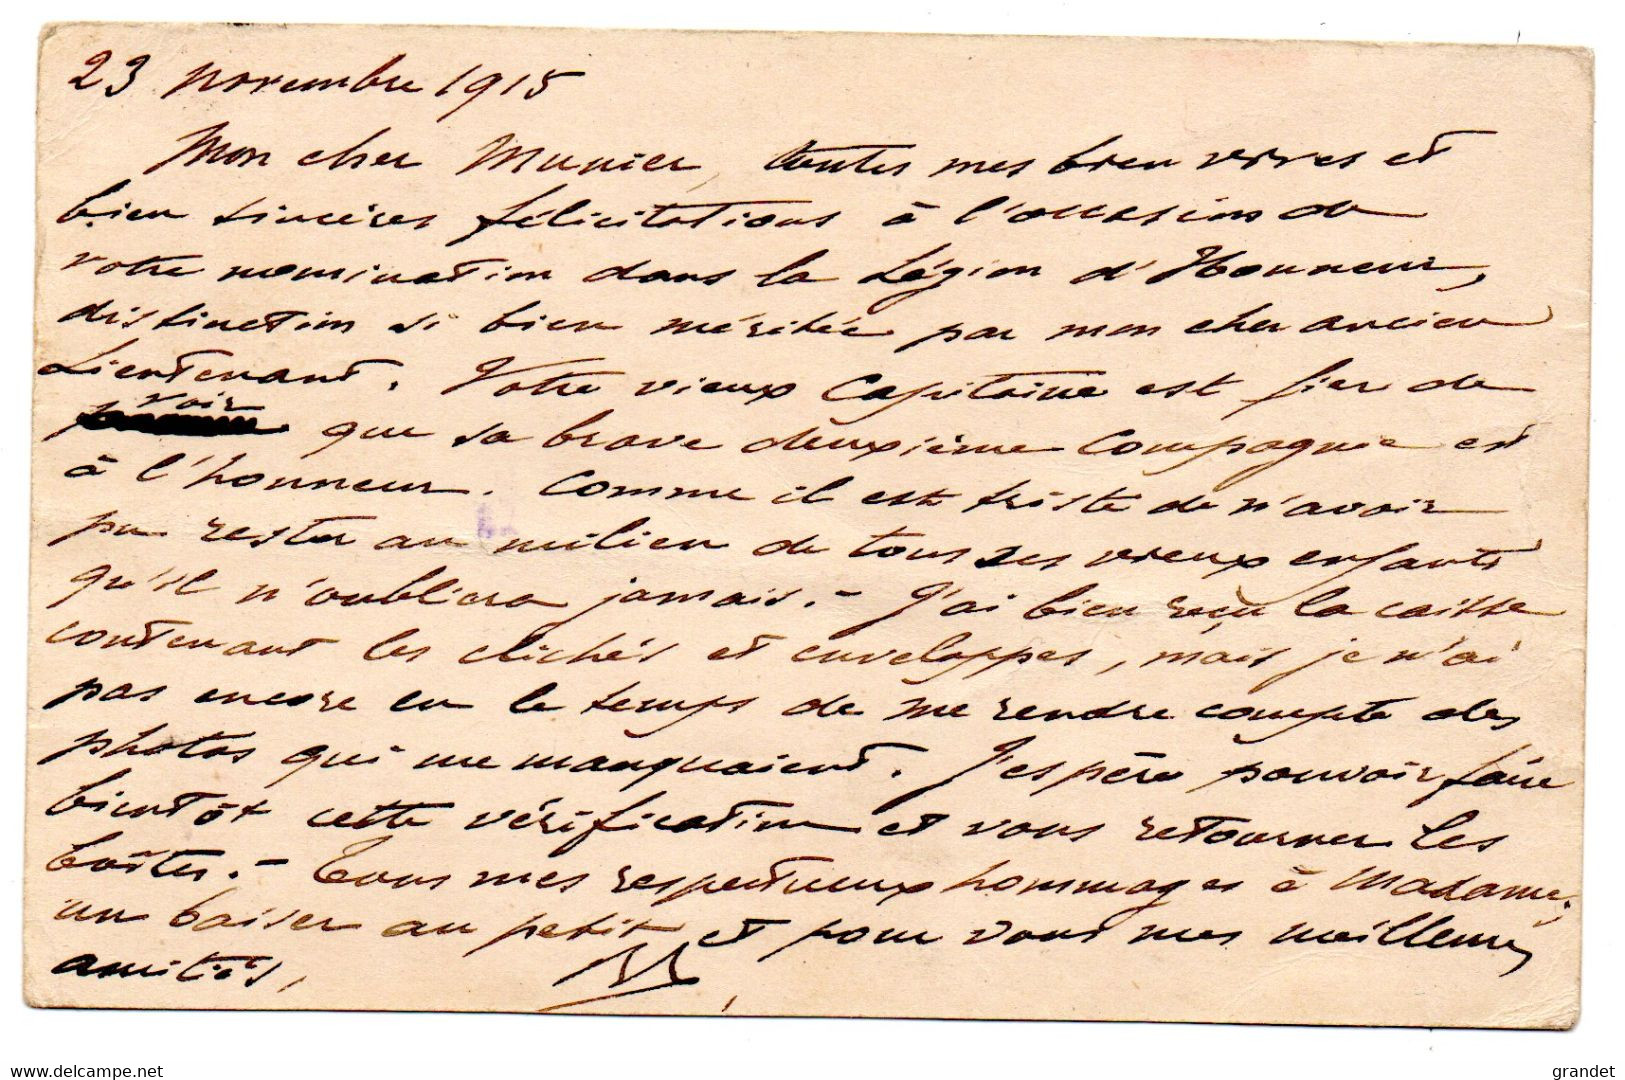 23 novembre 1915
Mon cher Munier, toutes mes bien vives et
bien sincères félicitations à l'occasion de
votre nomination dans la Légion d'Honneur,
distinction si bien méritée par mon cher ancien
Lieutenant. Votre vieux Capitaine est fier de
voir que sa brave deuxième Compagnie est
à l'honneur. Comme il est triste de n'avoir
pu rester au milieu de tous ses vieux enfants
qu'il n'oubliera jamais. - J'ai bien reçu la caisse
contenant les clichés et enveloppes, mais je n'ai
pas encore eu le temps de me rendre compte des
photos qui me manquaient. J'espère pouvoir faire
bientôt cette vérification et vous retourner les
boîtes. - Tous mes respectueux hommages à Madame,
un baiser au petit et pour vous mes meilleures
amitiés,
www.delcampe.net
grandet